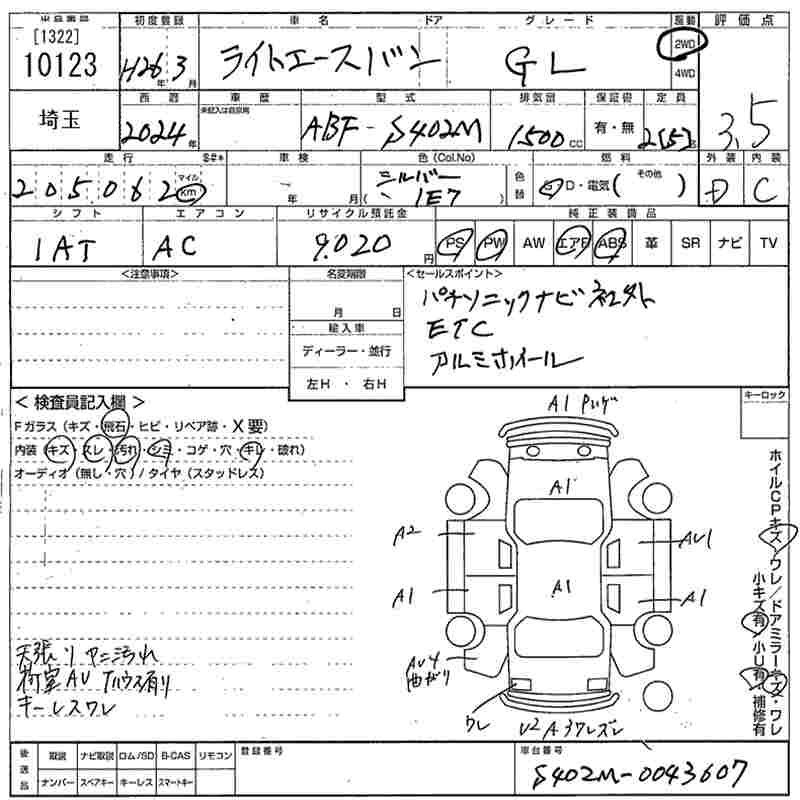 初度登録 車名 ドア グレード 駆動 評価点
[1322]
10123 H26年 3月 ライトエースバン GL 2WD
4WD
埼玉 西暦 車歴 型式 排気量 保証書 定員 3.5
未記入は自家用
2024年 ABF-S402M 1500cc 有・無 2(5)名
走行 車検 色(Col.No) 燃料 外装 内装
205062 マイル km 年 月 シルバー 1E7 色替 G・D・電気( その他 ) D C
シフト エアコン リサイクル預託金 純正装備品
IAT AC 9,020円 PS PW AW エアB ABS 革 SR ナビ TV
<注意事項> 名変期限 <セールスポイント>
月 日 パナソニックナビ 社外
輸入車 ETC
ディーラー・並行 アルミホイール
左H・右H
<検査員記入欄> キーロック
Fガラス(キズ・飛石・ヒビ・リペア跡・X要)
内装(キズ・スレ・汚れ・シミ・コゲ・穴・キレ・破れ)
オーディオ(無し・穴)/タイヤ(スタッドレス)
A1
A1
A2 AU1
A1 A1 A1
AU4
曲がり
ワレ
ホイルCPキズ・ワレ/ドアミラーキズ・ワレ
小キズ有/小U有/補修有
天張り ヤニ汚れ
荷室AU Tハウス有り
キーレスワレ
後送品 取説 ナビ取説 ロム/SD B-CAS リモコン 登録番号 車台番号
ナンバー スペアキー キーレス スマートキー S402M-0043607